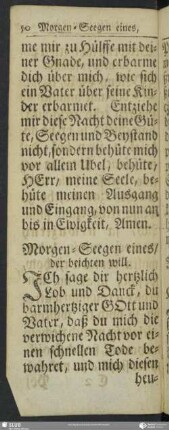 50 Morgen-Seegen eines,
me mir zu Hülffe mit dei-
ner Gnade, und erbarme
dich über mich, wie sich
ein Vater über seine Kin-
der erbarmet. Entziehe
mir diese Nacht deine Gü-
te, Seegen und Beystand
nicht, sondern behüte mich
vor allem Ubel, behüte,
HErr, meine Seele, be-
hüte meinen Ausgang
und Eingang, von nun an
bis in Ewigkeit, Amen.
Morgen-Seegen eines/
der beichten will.
ICh sage dir hertzlich
Lob und Danck, du
barmhertziger GOtt und
Vater, daß du mich die
verwichene Nacht vor ei-
nen schnellen Tode be-
wahret, und mich diesen
heu-
SLUB